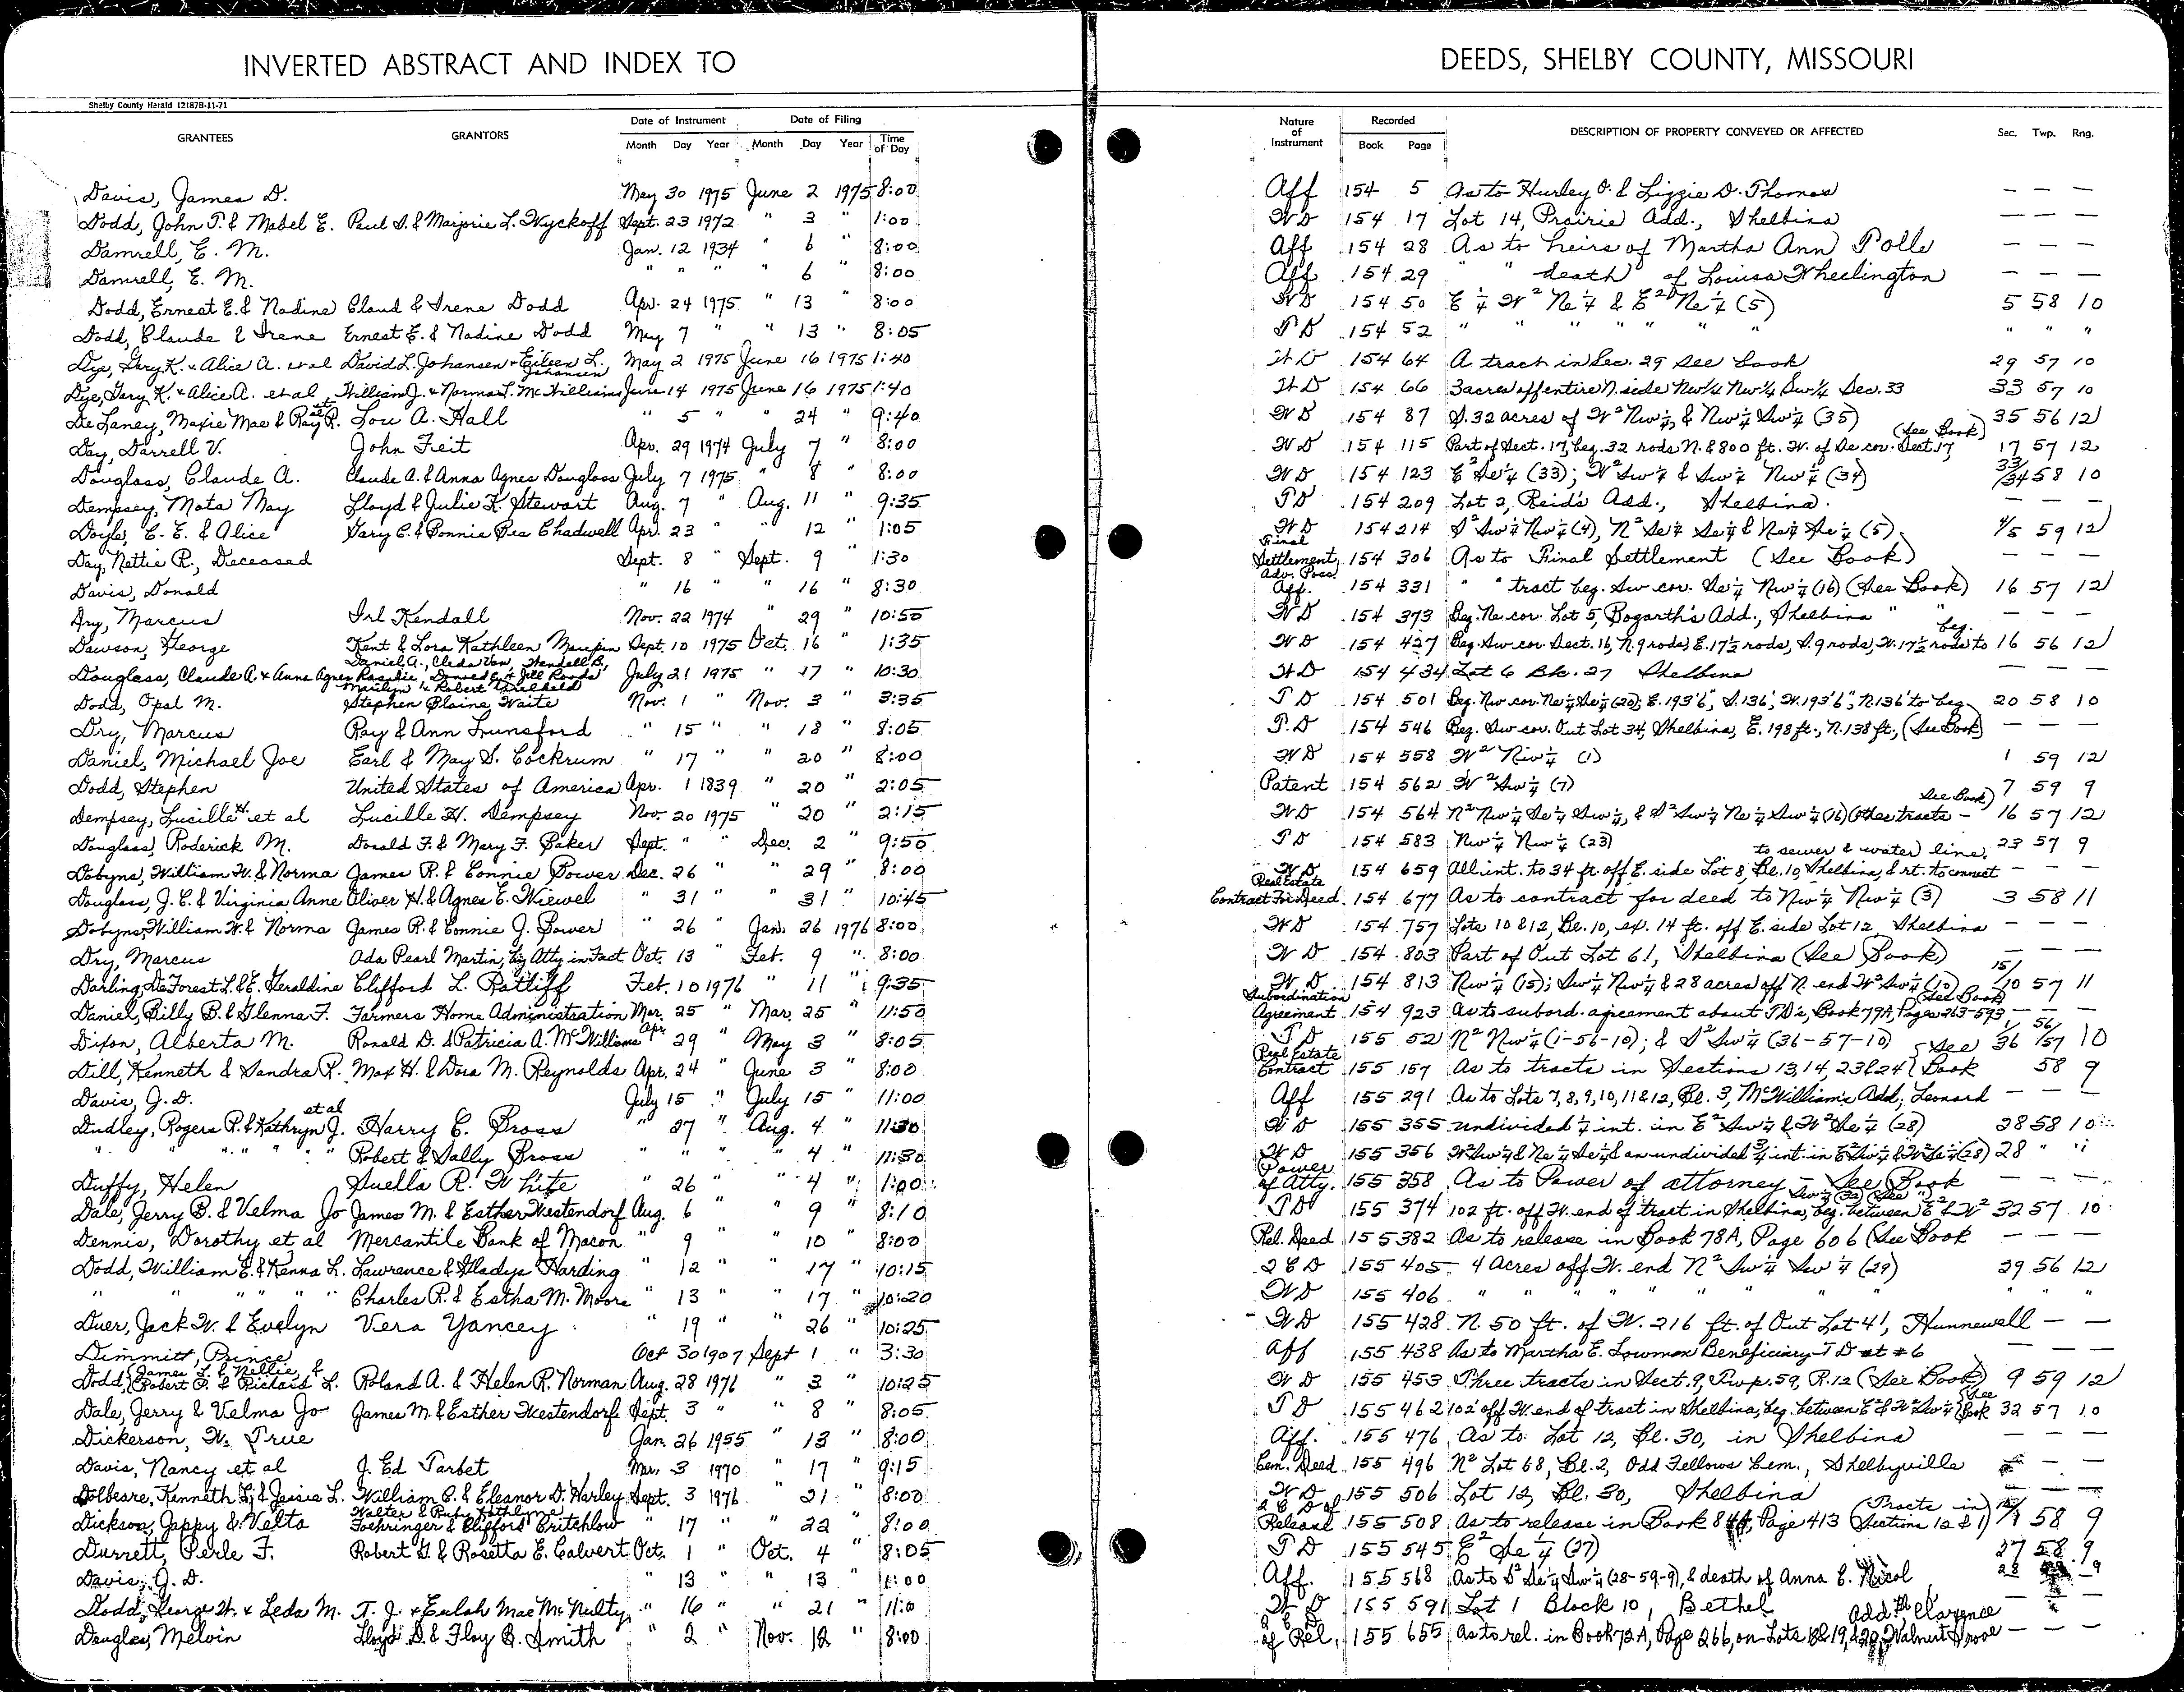 INVERTED ABSTRACT AND INDEX TO DEEDS, SHELBY COUNTY, MISSOURI
Shelby County Herald 12187B-11-71
GRANTEES GRANTORS Date of Instrument Month Day Year Date of Filing Month Day Year Time of Day Nature of Instrument Recorded Book Page DESCRIPTION OF PROPERTY CONVEYED OR AFFECTED Sec. Twp. Rng.
Davis, James D. May 30 1975 June 2 1975 8:00 Aff 154 5 As to Hurley O. & Lizzie D. Thomas — — —
Dodd, John T. & Mabel E. Paul S. & Marjorie L. Wyckoff Sept. 23 1972 " 3 " 1:00 WD 154 17 Lot 14, Prairie Add., Shelbina — — —
Damrell, E. M. Jan. 12 1934 " 6 " 8:00 Aff 154 28 As to heirs of Martha Ann Polle — — —
Damrell, E. M. " " " " 6 " 8:00 Aff 154 29 " " death of Louisa Wheelington — — —
Dodd, Ernest E. & Nadine Claud & Irene Dodd Apr. 24 1975 " 13 " 8:00 WD 154 50 E ¼ W² Ne ¼ & E² Ne ¼ (5) 5 58 10
Dodd, Claude & Irene Ernest E. & Nadine Dodd May 7 " " 13 " 8:05 TD 154 52 " " " " " " " " " "
Dye, Gary K. & Alice A. et al David L. Johansen & Eileen L. Johansen May 2 1975 June 16 1975 1:40 WD 154 64 A tract in Sec. 29 see book 29 57 10
Dye, Gary K. & Alice A. et al William J. & Norma L. McWilliams June 14 1975 June 16 1975 1:40 WD 154 66 3 acres off entire N. side Nw¼ Nw¼ Sw¼ Sec. 33 33 57 10
DeLaney, Maxie Mae & Ray R. et al Lou A. Hall " 5 " " 24 " 9:40 WD 154 87 S. 32 acres of W² Nw¼, & Nw¼ Sw¼ (35) 35 56 12
Day, Darrell V. John Feit Apr. 29 1974 July 7 " 8:00 WD 154 115 Part of Sect. 17, beg. 32 rods N. & 800 ft. W. of Se cor. Sect. 17, (See Book) 17 57 12
Douglass, Claude A. Claude A. & Anna Agnes Douglass July 7 1975 " 8 " 8:00 WD 154 123 E² Se¼ (33); W² Sw¼ & Sw¼ Nw¼ (34) 33/34 58 10
Dempsey, Mota May Lloyd & Julie K. Stewart Aug. 7 " Aug. 11 " 9:35 TD 154 209 Lot 2, Reid's Add., Shelbina. — — —
Doyle, C. E. & Alice Gary C. & Bonnie Rea Chadwell Apr. 23 " " 12 " 1:05 WD 154 214 S² Sw¼ Nw¼ (4), N² Se¼ Se¼ & Ne¼ Se¼ (5). 4/5 59 12
Day, Nettie R., Deceased Sept. 8 " Sept. 9 " 1:30 Final Settlement 154 306 As to Final Settlement (See Book) — — —
Davis, Donald " 16 " " 16 " 8:30 Adv. Poss. Aff. 154 331 " " tract beg. Sw cor. Se¼ Nw¼ (16) (See Book) 16 57 12
Dry, Marcus Irl Kendall Nov. 22 1974 " 29 " 10:50 WD 154 373 Beg. Ne cor. Lot 5, Bogarth's Add., Shelbina " " — — —
Dawson, George Kent & Lora Kathleen Maupin Sept. 10 1975 Oct. 16 " 1:35 WD 154 427 Beg. Sw cor. Sect. 16, N. 9 rods, E. 17½ rods, S. 9 rods, W. 17½ rods to beg. 16 56 12
Douglass, Claude A. & Anna Agnes Daniel A., Cleda Von, Wendell B., Rosalie, Donald E. & Jill Roads Marilyn & Robert Threlkeld July 21 1975 " 17 " 10:30 WD 154 434 Lot 6 Bk. 27 Shelbina — — —
Dodd, Opal M. Stephen Blaine Waite Nov. 1 " Nov. 3 " 3:35 TD 154 501 Beg. Nw cor. Ne¼ Se¼ (20); E. 193'6", S. 136', W. 193'6", N. 136' to beg. 20 58 10
Dry, Marcus Ray & Ann Lunsford " 15 " " 18 " 8:05 T.D 154 546 Beg. Sw cor. Out Lot 34, Shelbina, E. 198 ft., N. 138 ft., (See Book) — — —
Daniel, Michael Joe Earl & May S. Cockrum " 17 " " 20 " 8:00 WD 154 558 W² Nw¼ (1) 1 59 12
Dodd, Stephen United States of America Apr. 1 1839 " 20 " 2:05 Patent 154 562 W² Sw¼ (7) 7 59 9
Dempsey, Lucille H. et al Lucille H. Dempsey Nov. 20 1975 " 20 " 2:15 WD 154 564 N² Nw¼ Se¼ Sw¼, & S² Sw¼ Ne¼ Sw¼ (16) (Other tracts - See Book) 16 57 12
Douglass, Roderick M. Donald F. & Mary F. Baker Sept. " " Dec. 2 " 9:50 TD 154 583 Nw¼ Nw¼ (23) 23 57 9
Dobyns, William W. & Norma James R. & Connie Power Dec. 26 " " 29 " 8:00 WD 154 659 All int. to 34 ft off E. side Lot 8, Bl. 10, Shelbina, & rt. to connect to sewer & water line. — —
Douglass, J. C. & Virginia Anne Oliver H. & Agnes E. Wiewel " 31 " " 31 " 10:45 Real Estate Contract For Deed 154 677 As to contract for deed to Nw¼ Nw¼ (3) 3 58 11
Dobyns, William W. & Norma James R. & Connie J. Power " 26 " Jan. 26 1976 8:00 WD 154 757 Lots 10 & 12, Bl. 10, ex. 14 ft. off E. side Lot 12, Shelbina — — —
Dry, Marcus Ada Pearl Martin, by Atty in Fact Oct. 13 " Feb. 9 " 8:00 WD 154 803 Part of Out Lot 61, Shelbina (See Book) — — —
Darling, DeForest L. & E. Geraldine Clifford L. Ratliff Feb. 10 1976 " 11 " 9:35 W.D. 154 813 Nw¼ (15); Sw¼ Nw¼ & 28 acres off N. end W² Sw¼ (10) 15/10 57 11
Daniel, Billy B. & Glenna F. Farmers Home Administration Mar. 25 " Mar. 25 " 11:50 Subordination Agreement 154 923 As to subord. agreement about TD's, Book 79A, Pages 263-593 (See Book) — — —
Dixon, Alberta M. Ronald D. & Patricia A. McWilliams Apr. 29 " May 3 " 8:05 TD 155 52 N² Nw¼ (1-56-10); & S² Sw¼ (36-57-10) 1/36 56/57 10
Dill, Kenneth & Sandra R. Max H. & Dora M. Reynolds Apr. 24 " June 3 " 8:00 Real Estate Contract 155 157 As to tracts in Sections 13, 14, 23 & 24 (See Book 58 9
Davis, J. D. July 15 " July 15 " 11:00 Aff 155 291 As to Lots 7, 8, 9, 10, 11 & 12, Bl. 3, McWilliams Add; Leonard — — —
Dudley, Rogers R. & Kathryn J. et al Harry C. Bross " 27 " Aug. 4 " 11:30 WD 155 355 undivided ¼ int. in E² Sw¼ & W² Se¼ (28) 28 58 10
" " " " " Robert & Sally Bross " " " " 4 " 11:30 WD 155 356 W² Sw¼ & Ne¼ Se¼ & an undivided ¾ int. in E² Sw¼ & W² Se¼ (28) 28 " "
Duffy, Helen Suella R. White " 26 " " 4 " 1:00 Power of Atty. 155 358 As to Power of attorney - See Book — — —
Dale, Jerry B. & Velma Jo James M. & Esther Westendorf Aug. 6 " " 9 " 8:10 TD 155 374 102 ft. off W. end of tract in Shelbina, beg. between E² & W² Sw¼ (32) (See ") 32 57 10
Dennis, Dorothy et al Mercantile Bank of Macon " 9 " " 10 " 8:00 Rel. Deed 155 382 As to release in Book 78A, Page 606 (See Book — — —
Dodd, William E. & Kenna L. Lawrence & Gladys Harding " 12 " " 17 " 10:15 QCD 155 405 4 Acres off W. end N² Sw¼ Sw¼ (29) 29 56 12
" " " " " Charles R. & Estha M. Moore " 13 " " 17 " 10:20 WD 155 406 " " " " " " " " " " "
Duer, Jack W. & Evelyn Vera Yancey " 19 " " 26 " 10:25 WD 155 428 N. 50 ft. of W. 216 ft. of Out Lot 41, Hunnewell — — —
Dimmitt, Prince Oct 30 1907 Sept 1 " 3:30 Aff 155 438 As to Martha E. Lowman Beneficiary TD # 6
Dodd, James L. & Nellie, & Robert P. & Richard L. Roland A. & Helen R. Norman Aug. 28 1976 " 3 " 10:25 WD 155 453 Three tracts in Sect. 9, Twp. 59, R. 12 (See Book) 9 59 12
Dale, Jerry & Velma Jo James M. & Esther Westendorf Sept. 3 " " 8 " 8:05 TD 155 462 102' off W. end of tract in Shelbina, beg. between E² & W² Sw¼ (See Book 32 57 10
Dickerson, W. True Jan. 26 1955 " 13 " 8:00 Aff. 155 476 As to Lot 12, Bl. 30, in Shelbina — — —
Davis, Nancy et al J. Ed Tarbet Mar. 3 1970 " 17 " 9:15 Cem. Deed 155 496 N² Lot 68, Bl. 2, Odd Fellows Cem., Shelbyville — —
Dolbeare, Kenneth L. & Jessie L. William C. & Eleanor D. Harley Sept. 3 1976 " 21 " 8:00 WD 155 506 Lot 12, Bl. 30, Shelbina — — —
Dickson, Jappy & Velta Walter & Ruby Kathlyne Foehringer & Clifford Critchlow " 17 " " 22 " 8:00 QCD of Release 155 508 As to release in Book 84A, Page 413 (Tracts in Sections 12 & 1) 12/1 58 9
Durrett, Perle F. Robert G. & Rosetta E. Calvert Oct. 1 " Oct. 4 " 8:05 TD 155 545 E² Se¼ (27) 27 58 9
Davis, J. D. " 13 " " 13 " 1:00 Aff. 155 568 As to S² Se¼ Sw¼ (28-59-9), & death of Anna E. Nicol 28 9
Dodd, George W. & Leda M. T. J. & Eulah Mae McNulty " 16 " " 21 " 11:00 WD 155 591 Lot 1 Block 10, Bethel — —
Douglas, Melvin Lloyd D. & Floy B. Smith " 2 " Nov. 12 " 8:00 QCD of Rel. 155 655 As to rel. in Book 72A, Page 266, on Lots 18, 19, & 20, Walnut Grove Add to Clarence — — —